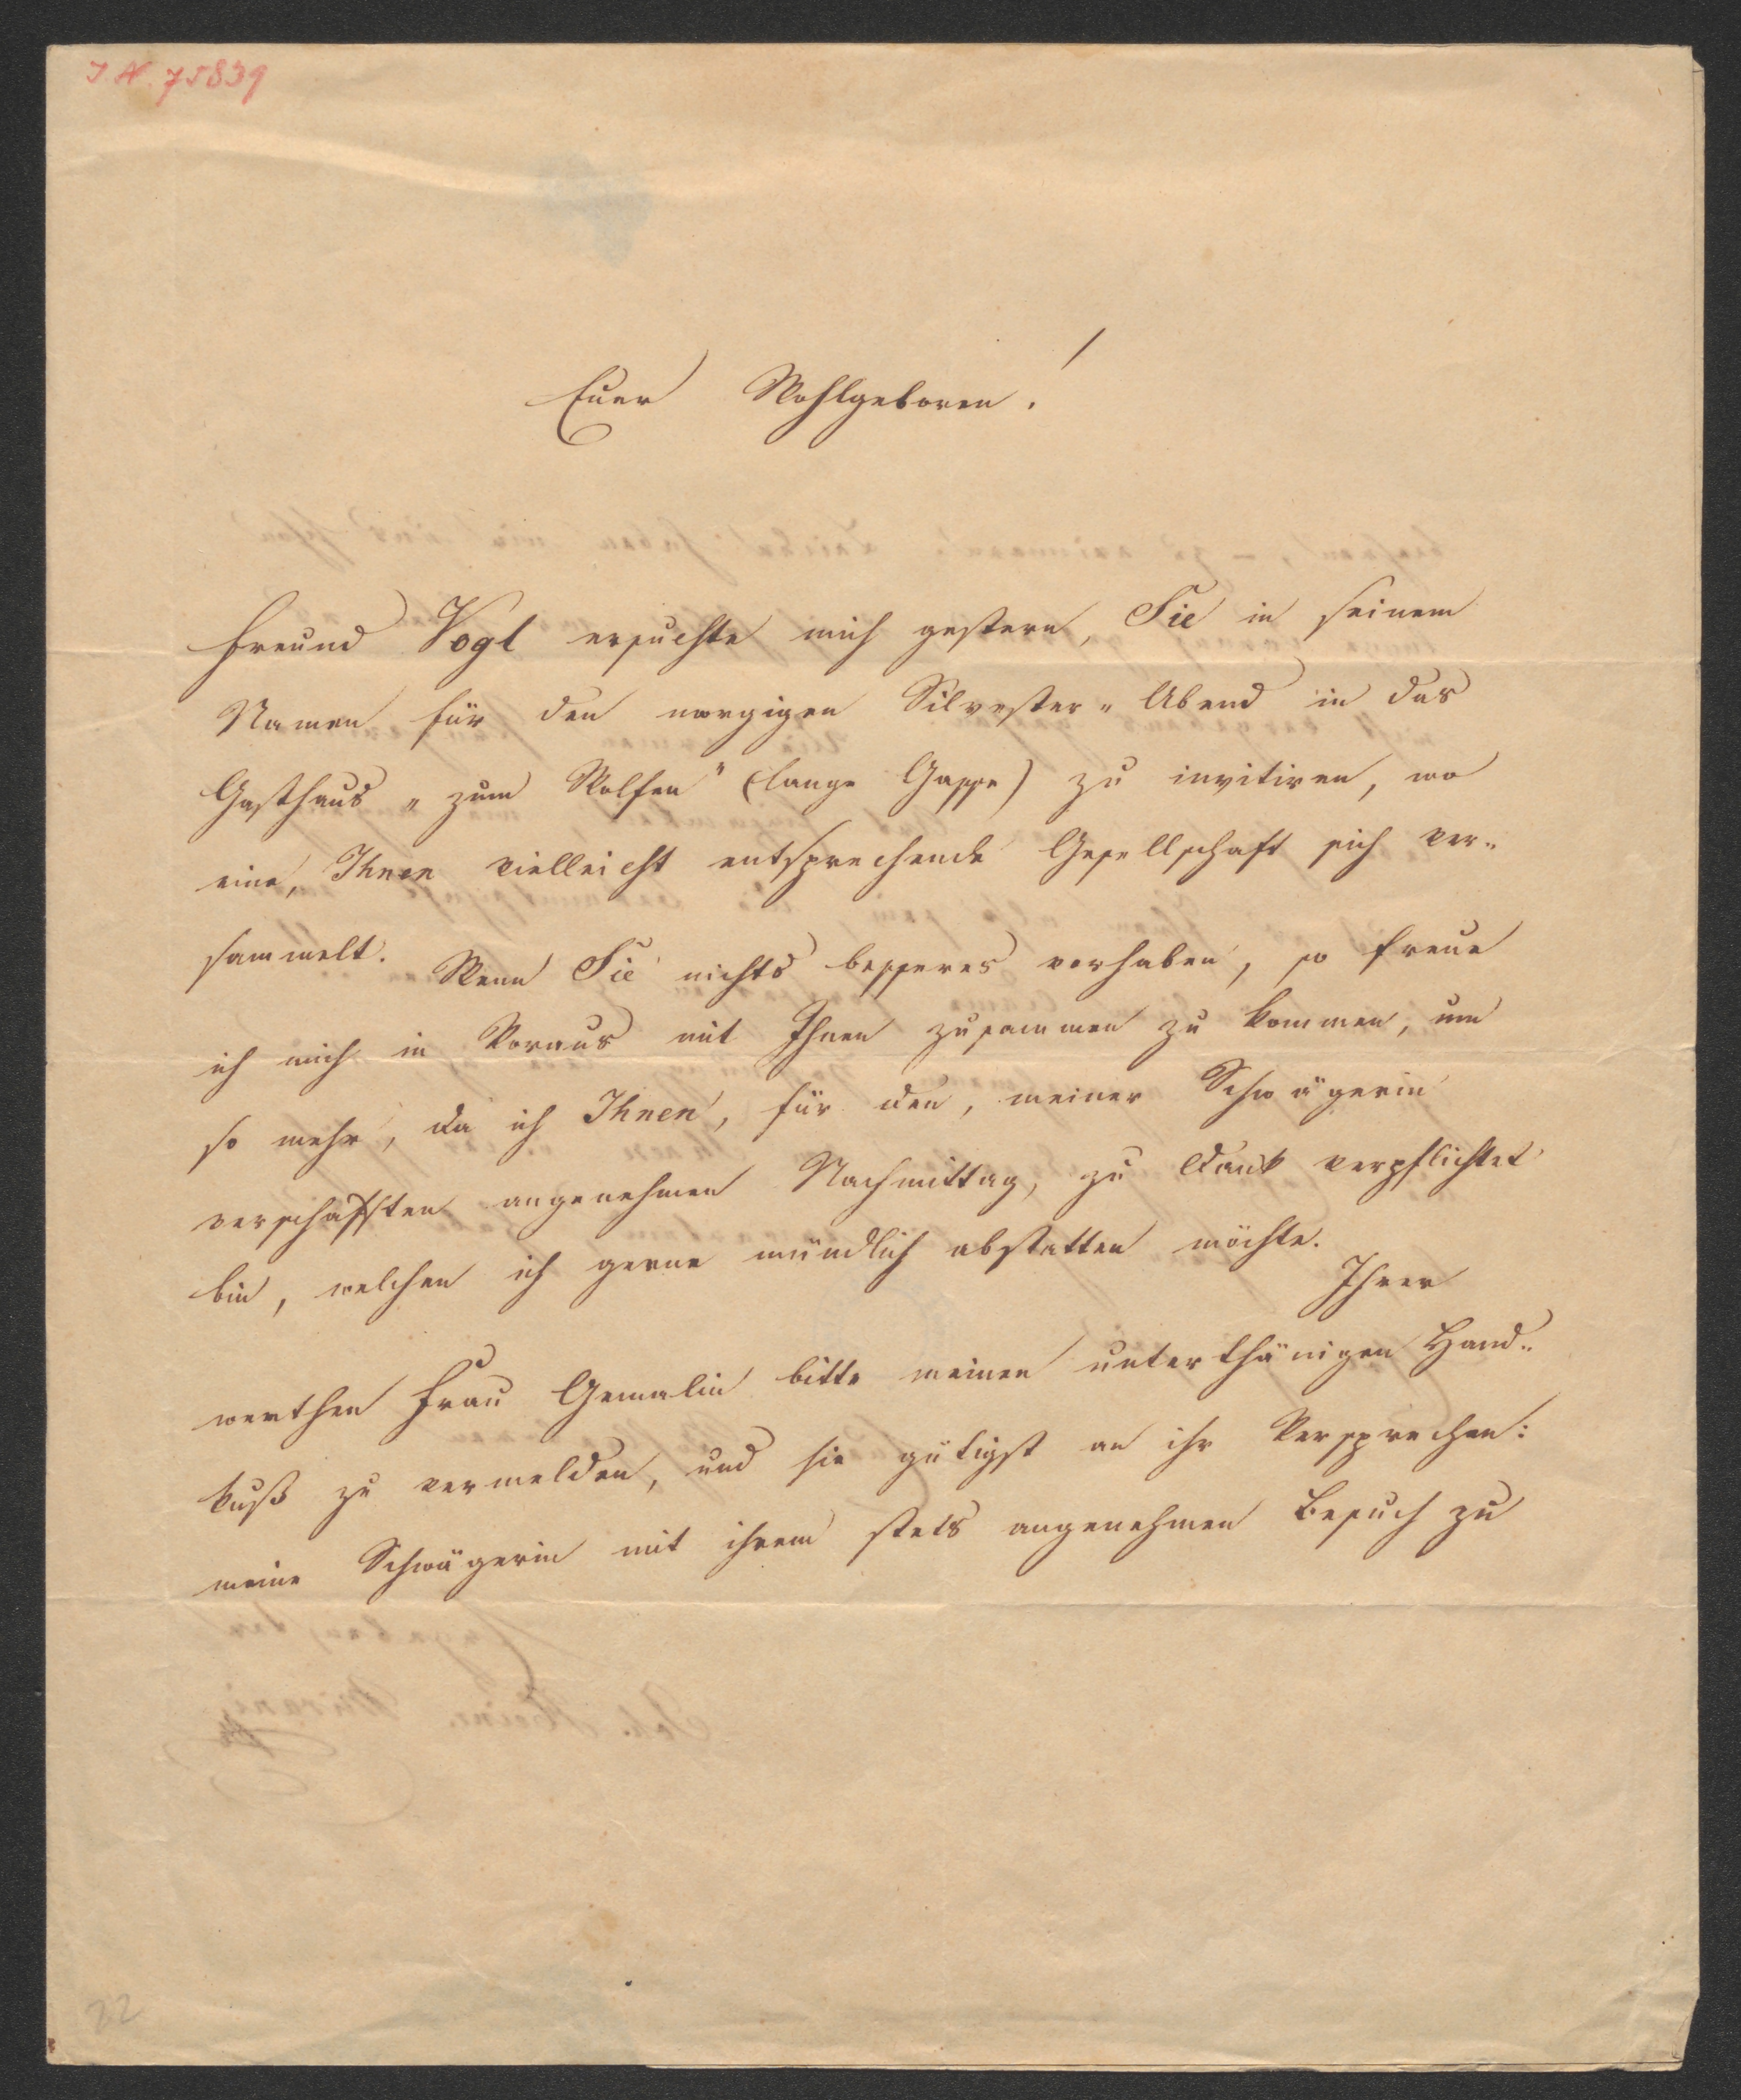 I N. 75839
Euer Wohlgeboren!
Freund Vogl ersuchte mich gestern, Sie in seinem
Namen für den morgigen Silvester„Abend in das
Gasthaus „zum Wolfen" (lange Gasse) zu invitiren, wo
eine, Ihnen vielleicht entsprechende Gesellschaft sich ver„
sammelt. Wenn Sie nichts besseres vorhaben, so freue
ich mich in Voraus mit Ihnen zusammen zu kommen, um
so mehr, da ich Ihnen, für den, meiner Schwägerin
verschafften angenehmen Nachmittag, zu Dank verpflichtet
bin, welchen ich gerne mündlich abstatten möchte.
Ihrer
werthen Frau Gemalin bitte meinen unterthänigen Hand„
kuß zu vermelden, und sie gütigst an ihr Versprechen:
meine Schwägerin mit ihrem stets angenehmen Besuch zu
22